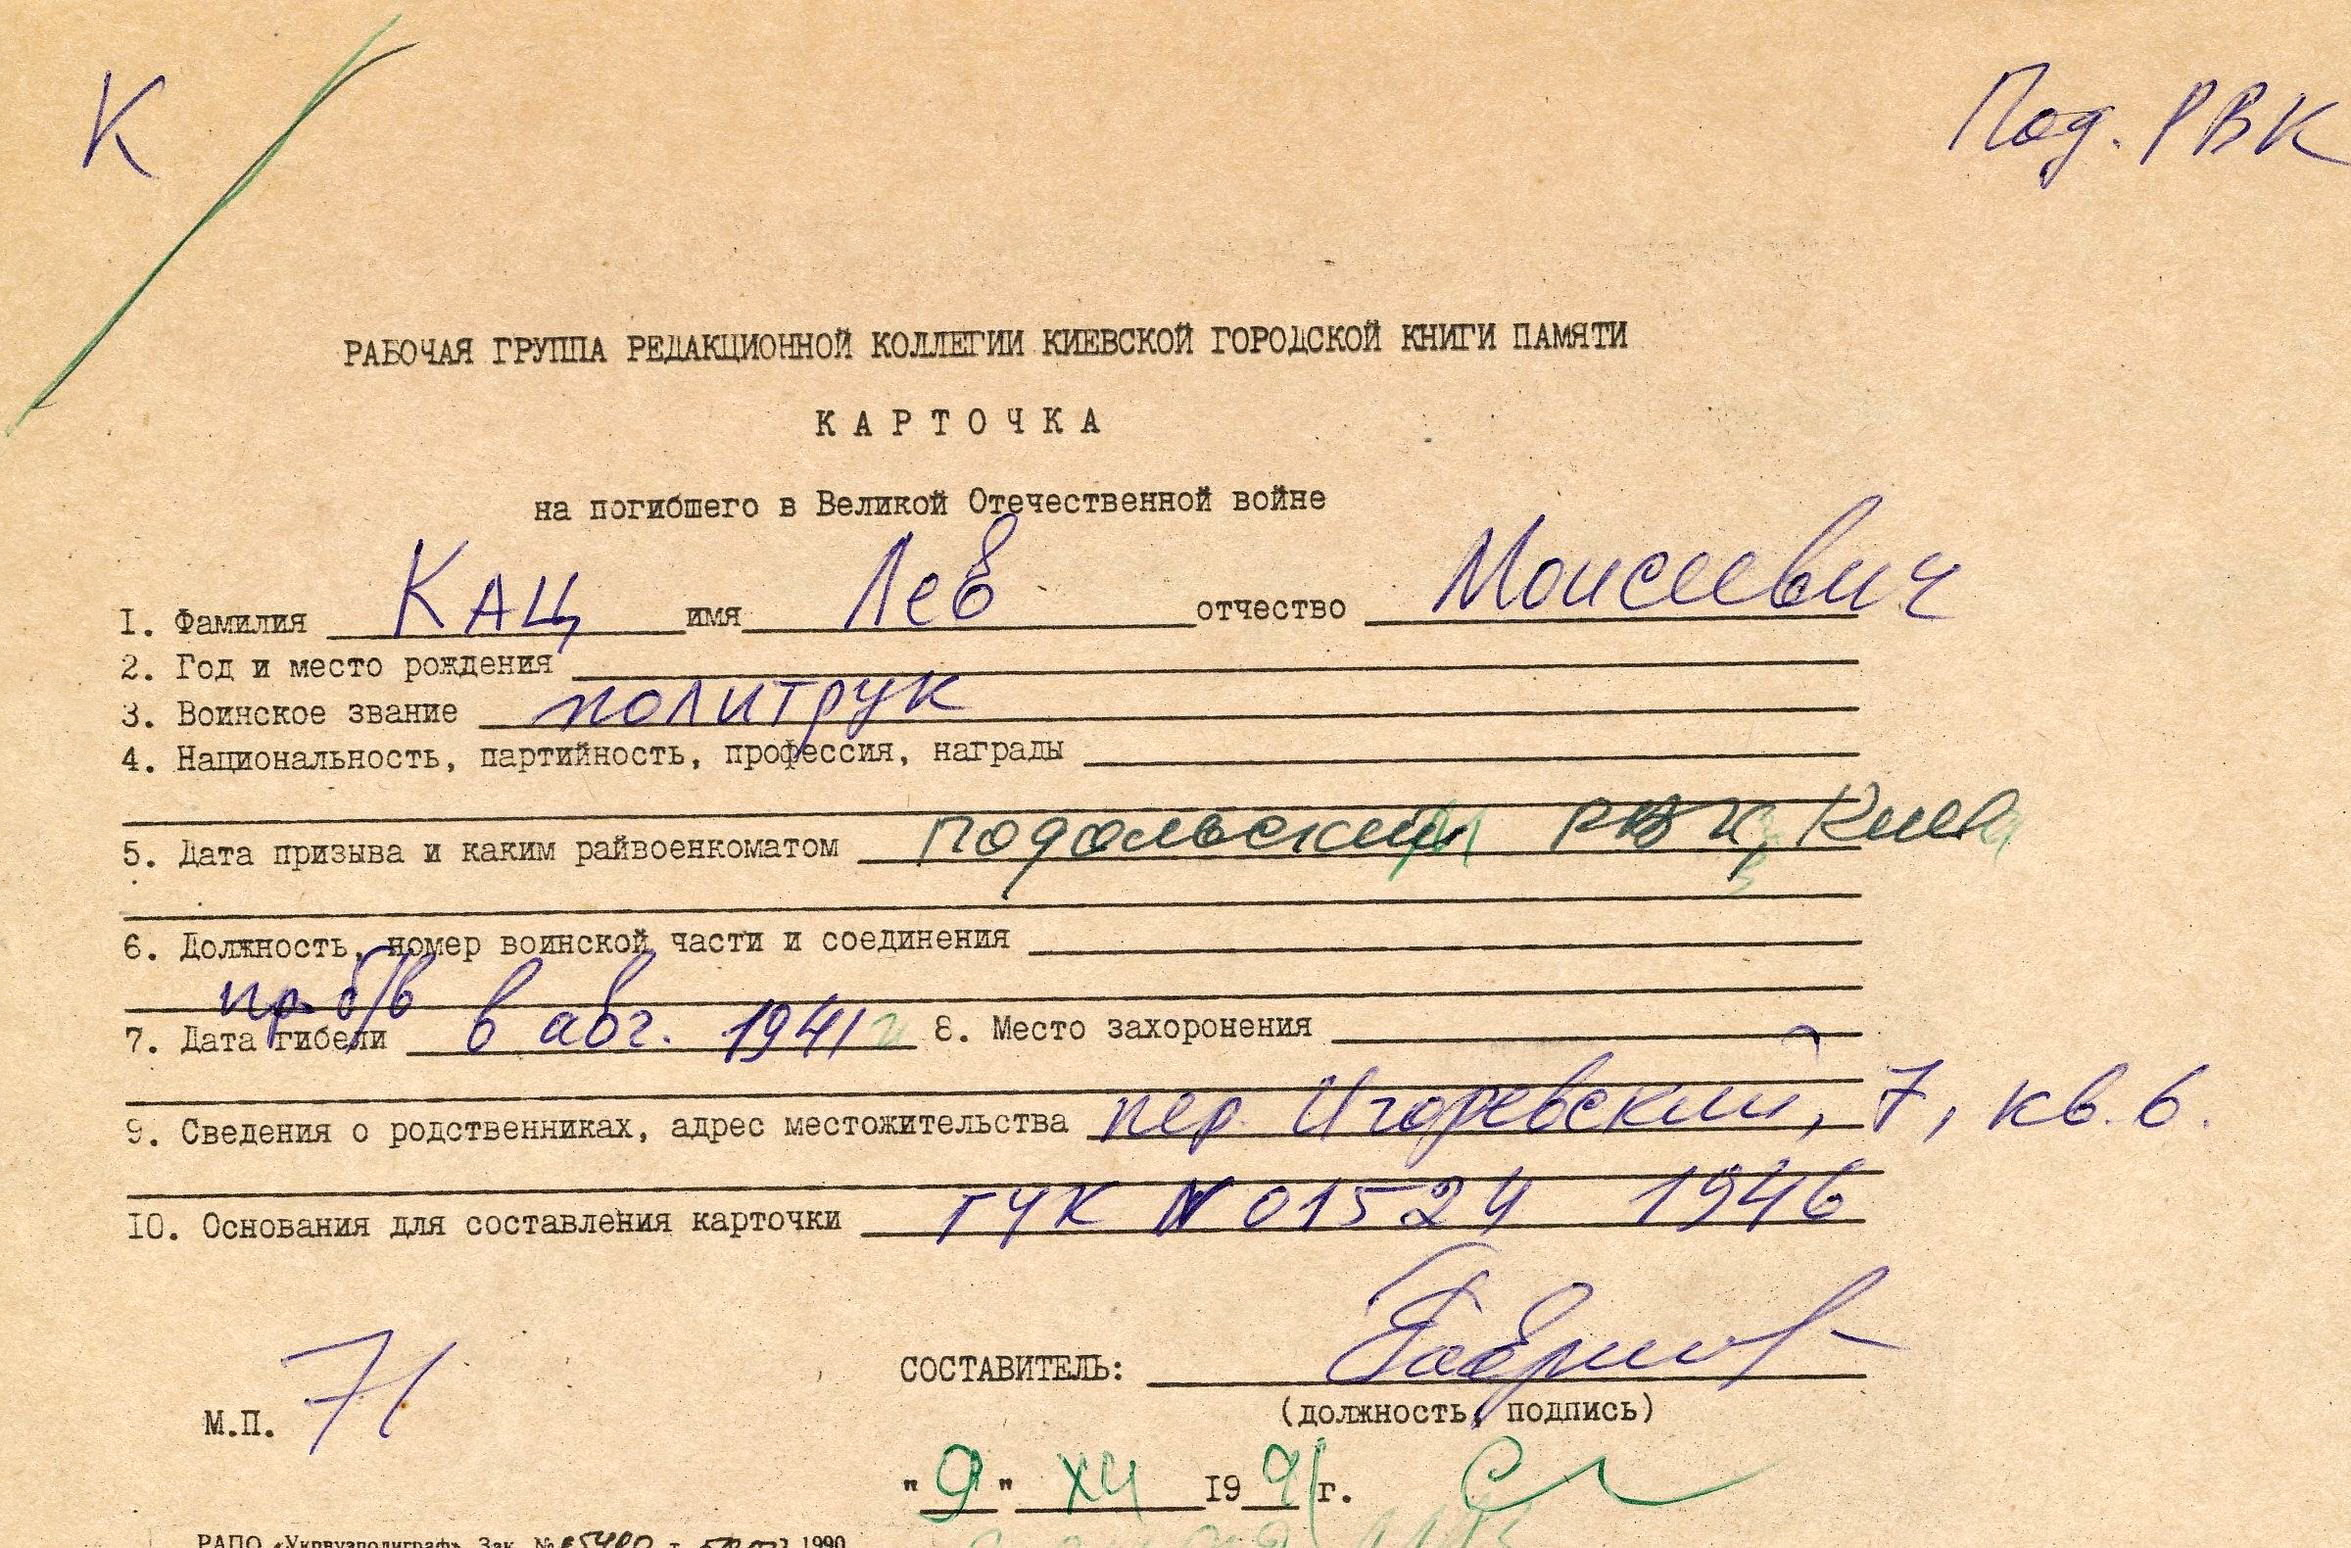 К Под. РВК
РАБОЧАЯ ГРУППА РЕДАКЦИОННОЙ КОЛЛЕГИИ КИЕВСКОЙ ГОРОДСКОЙ КНИГИ ПАМЯТИ
КАРТОЧКА
на погибшего в Великой Отечественной войне
1. Фамилия КАЦ имя Лев отчество Моисеевич
2. Год и место рождения
3. Воинское звание политрук
4. Национальность, партийность, профессия, награды
5. Дата призыва и каким райвоенкоматом Подольский РВК, Киева
6. Должность, номер воинской части и соединения
пр б/в
7. Дата гибели в авг. 1941 г 8. Место захоронения
9. Сведения о родственниках, адрес местожительства пер. Игоревский, 7, кв. 6.
10. Основания для составления карточки ГУК N 01524 1946
СОСТАВИТЕЛЬ:
(должность, подпись)
М.П. 71
"9" XII 1991 г.
РАПО «Укрвузполиграф» Зак. № 1990